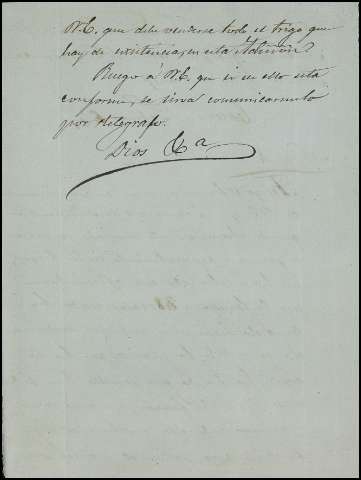 V.E. que debe venderse todo el trigo que
hay de existencia, en esta Admon.
Ruego á V.E. que si en ello está
conforme, se sirva comunicarmelo
por telegrafo.
Dios &a